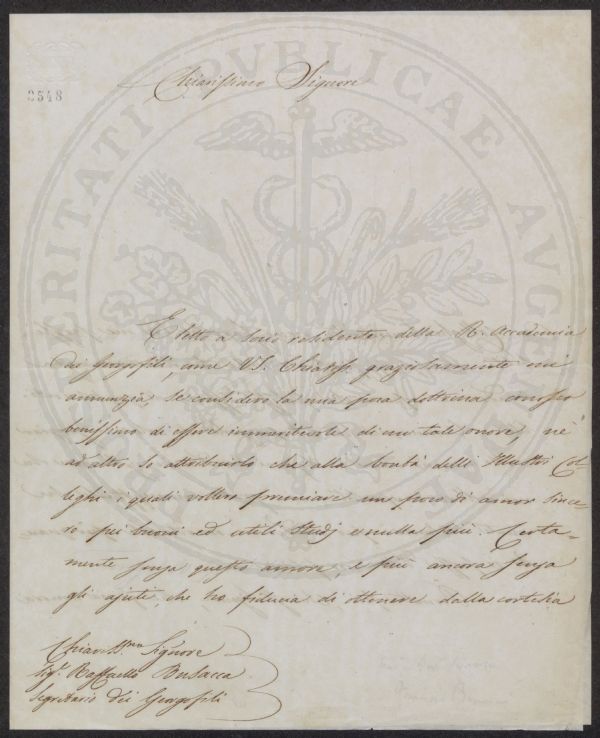 3548
Chiarissimo Signore
Eletto a Socio residente della R. Accademia
dei Georgofili, come V.S. Chiariss. graziosamente mi
annunzia, se considero la mia poca dottrina conosco
benissimo di essere immeritevole di un tale onore, nè
ad altro so attribuirlo che alla bontà delli Illustri Col
leghi i quali vollero premiare un poco di amor since
ro pei buoni ed utili Studj e nulla più. Certa-
mente senza questo amore, e più ancora senza
gli ajuti, che ho fiducia di ottenere dalla cortesia
Chiariss.mo Signore
Sig.r Raffaello Busacca
Segretario dei Georgofili
PROSPERITATI PVBLICAE AVGENDAE